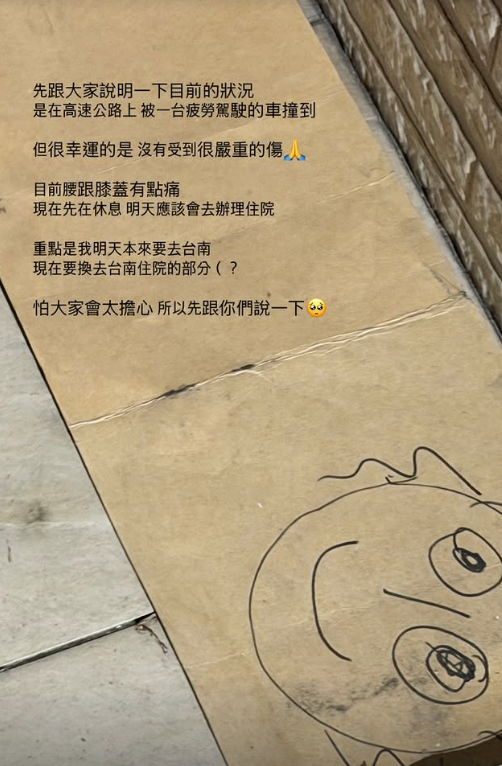 先跟大家說明一下目前的狀況
是在高速公路上 被一台疲勞駕駛的車撞到
但很幸運的是 沒有受到很嚴重的傷🙏
目前腰跟膝蓋有點痛
現在先在休息 明天應該會去辦理住院
重點是我明天本來要去台南
現在要換去台南住院的部分（ ？
怕大家會太擔心 所以先跟你們說一下🥺